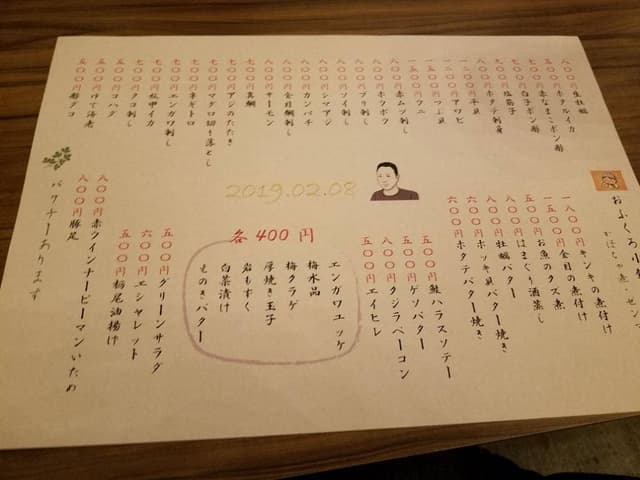 八〇〇円 生牡蠣
五〇〇円 ホタルイカ
七〇〇円 赤なまこポン酢
七〇〇円 白子ポン酢
九〇〇円 塩筋子
八〇〇円 ホタテ刺身
八〇〇円 平貝
一二〇〇円 アワビ
一五〇〇円 つぶ貝
一五〇〇円 ウニ
八〇〇円 赤ムツ刺し
八〇〇円 ホウボウ
八〇〇円 ブリ刺し
八〇〇円 ソイ刺し
八〇〇円 シマアジ
八〇〇円 カンパチ
八〇〇円 金目鯛刺し
八〇〇円 サーモン
七〇〇円 真鯛
七〇〇円 アジのたたき
七〇〇円 マグロ切り落とし
七〇〇円 ネギトロ
七〇〇円 エンガワ刺し
七〇〇円 紋甲イカ
五〇〇円 タコ刺し
五〇〇円 コハダ
五〇〇円 ゆで海老
五〇〇円 酢ダコ
おふくろ小
かぼちゃ煮・ゼンマ
一八〇〇円 キンキの煮付け
一五〇〇円 金目の煮付け
八〇〇円 お魚のカマ煮
八〇〇円 はまぐり酒蒸し
八〇〇円 牡蠣バター
八〇〇円 ホッキ貝バター焼き
六〇〇円 ホタテバター焼き
五〇〇円 鮭ハラスソテー
五〇〇円 ゲソバター
八〇〇円 クジラベーコン
五〇〇円 エイヒレ
2019.02.08
各400円
エンガワユッケ
梅水晶
梅クラゲ
厚焼き玉子
岩もずく
白菜漬け
えのきバター
五〇〇円 グリーンサラダ
六〇〇円 エシャレット
五〇〇円 栃尾油揚げ
八〇〇円 赤ウインナーピーマンいため
八〇〇円 豚足
パクチーあります